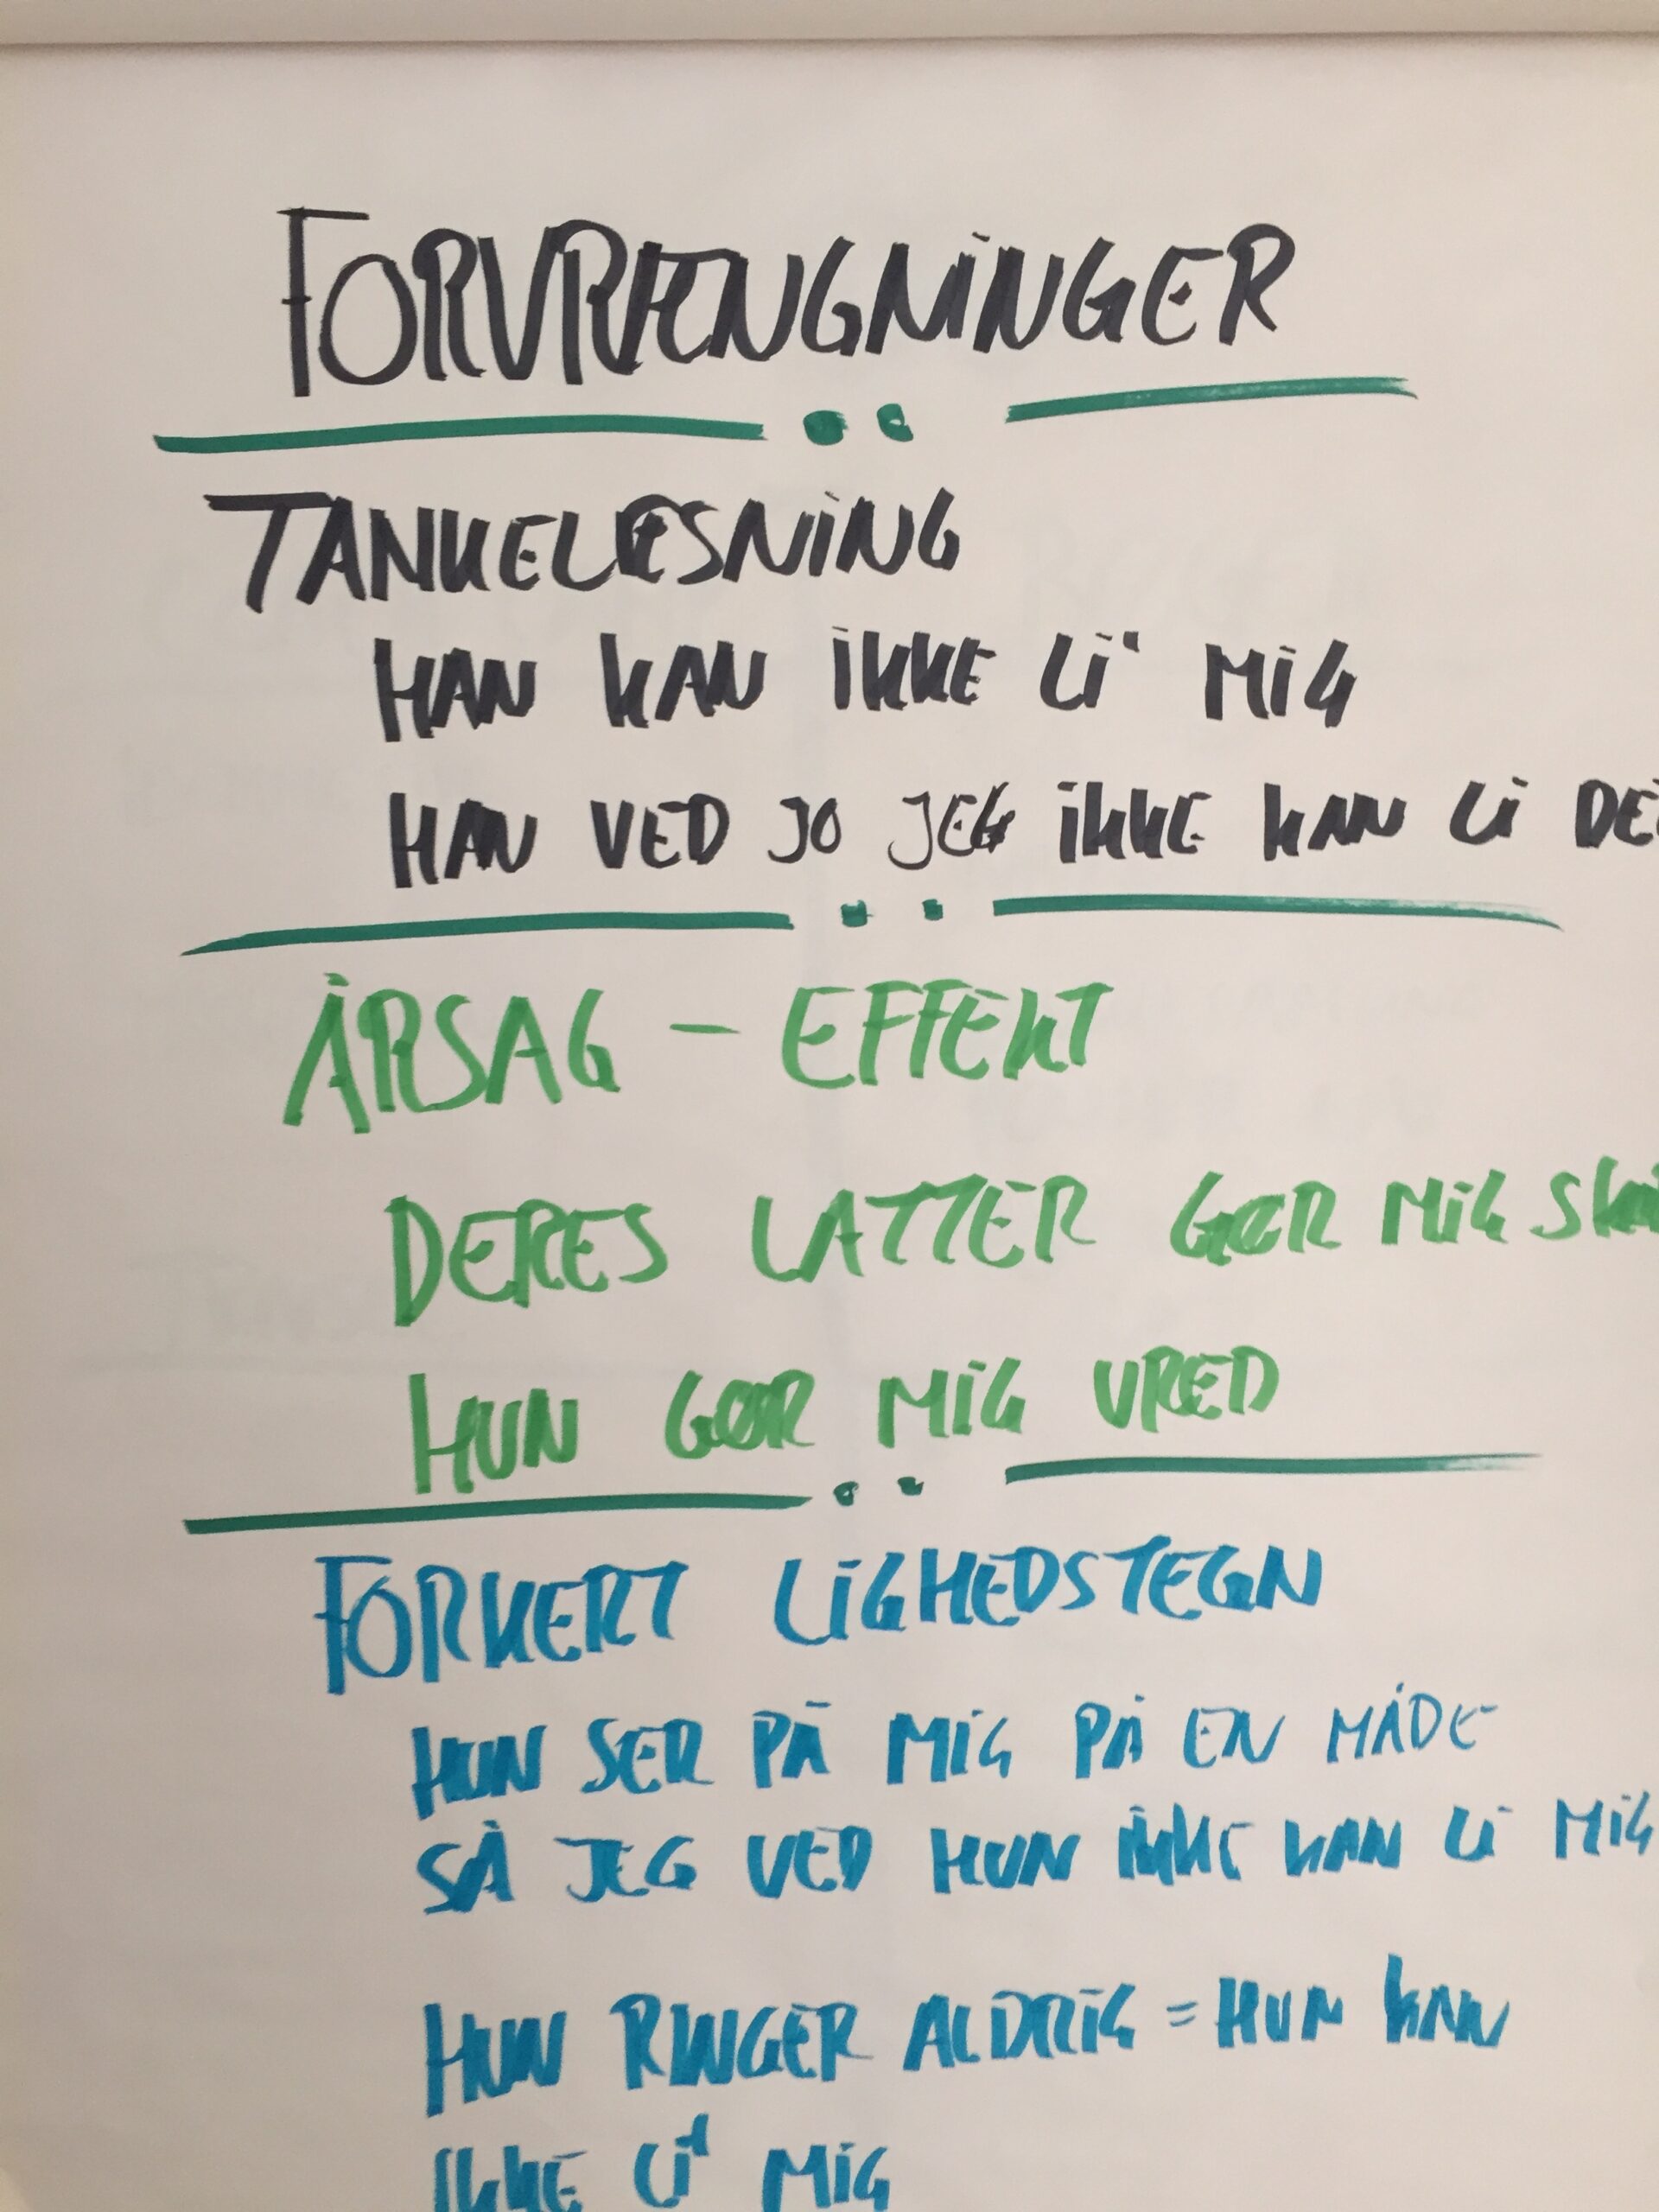 FORVRÆNGNINGER
TANKELÆSNING
HAN KAN IKKE LI' MIG
HAN VED JO JEG IKKE KAN LI
ÅRSAG - EFFEKT
DERES LATTER GØR MIG
HUN GØR MIG VRED
FORKERT LIGHEDSTEGN
HUN SER PÅ MIG PÅ EN MÅDE
SÅ JEG VED HUN IKKE KAN LI MIG
HUN RINGER ALDRIG = HUN KAN
IKKE LI' MIG